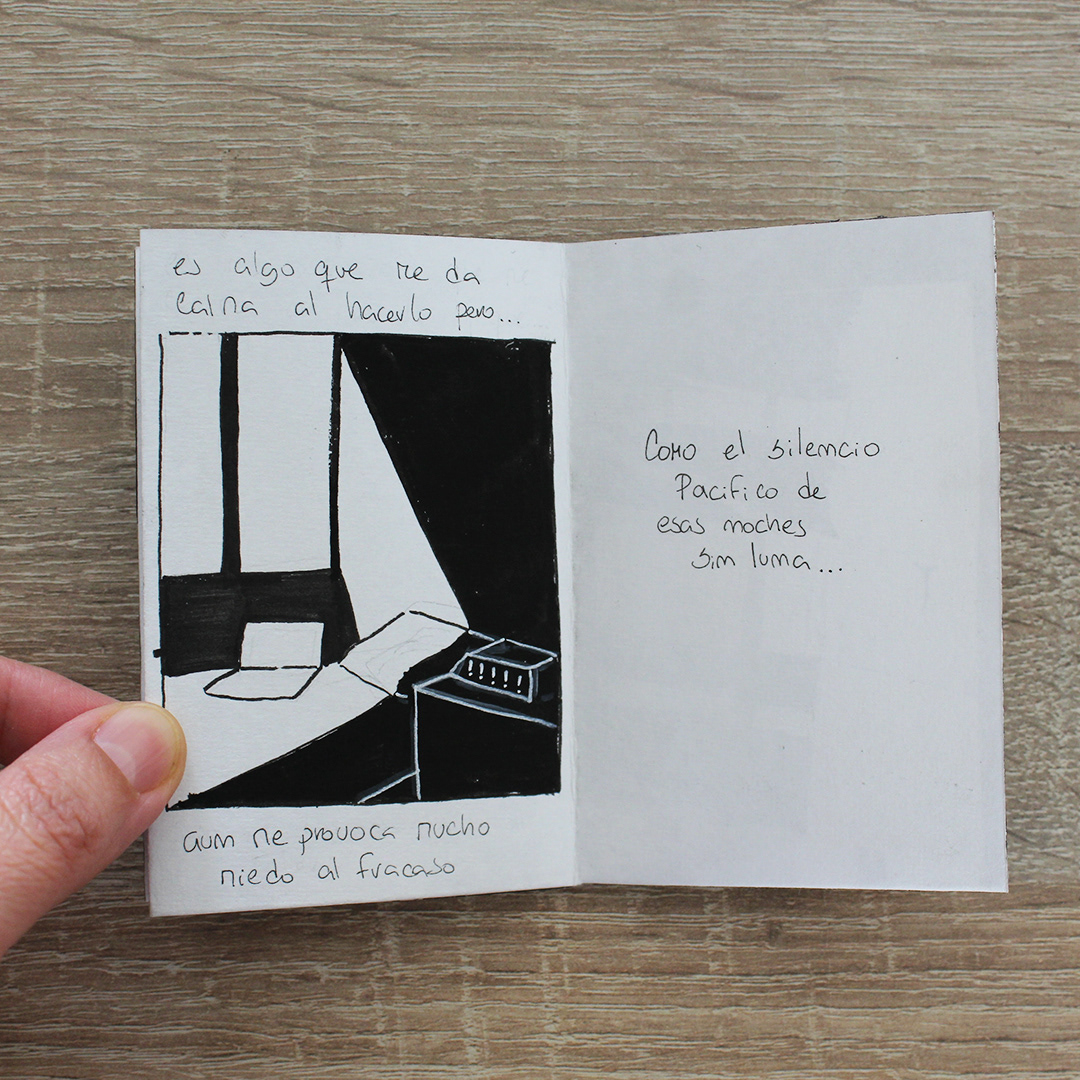 es algo que me da
calma al hacerlo pero...
aun me provoca mucho
miedo al fracaso
Como el silencio
Pacifico de
esas noches
sin luna...